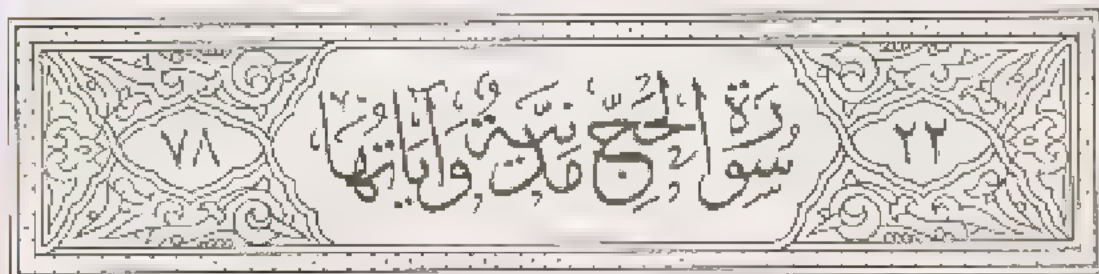 ٢٢ سُورَةُ الْحَجِّ مَدَنِيَّةٌ وَآيَاتُهَا ٧٨